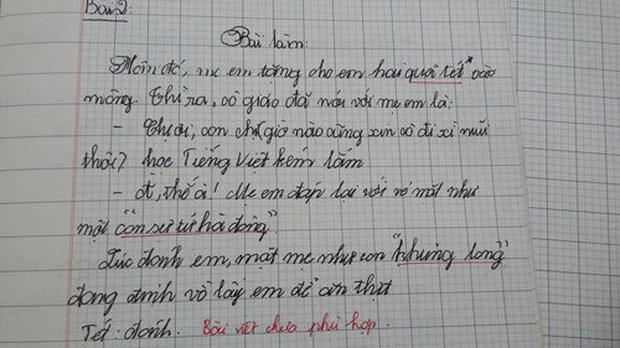 Bài 2:
Bài làm:
Hôm đó, mẹ em tặng cho em hai quả tét vào
mông. Thì ra, cô giáo đã nói với mẹ em là:
- Chị ơi, con chị giờ nào cũng xin cô đi xì mũi
thôi? học Tiếng Việt kém lắm
- Ờ, thế à! Mẹ em đáp lại với vẻ mặt như
một "con sư tử hà đông"
Lúc đánh em, mặt mẹ như con "khủng long"
đang định vồ lấy em để ăn thịt
Tét: đánh. Bài viết chưa phù hợp.